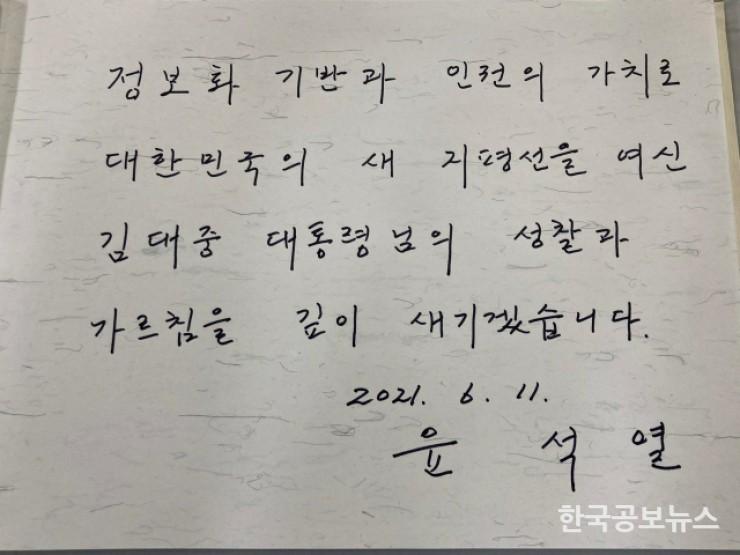 정보화 기반과 인권의 가치로
대한민국의 새 지평선을 여신
김대중 대통령님의 성찰과
가르침을 깊이 새기겠습니다.
2021. 6. 11.
윤 석 열
한국공보뉴스